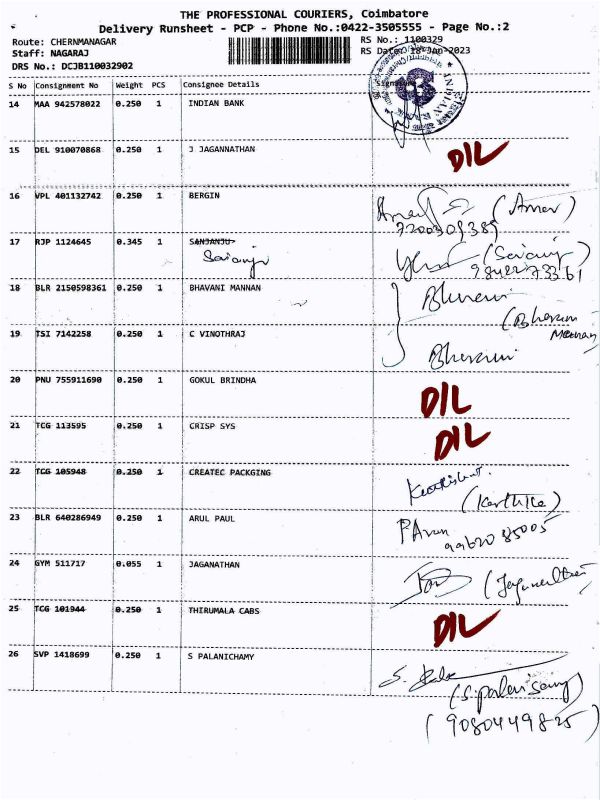 THE PROFESSIONAL COURIERS, Coimbatore
Delivery Runsheet - PCP - Phone No.:0422-3505555 - Page No.:2
Route: CHERNMANAGAR RS No.: 1100329
Staff: NAGARAJ RS Date: 18-Jan-2023
DRS No.: DCJB110032902
S No Consignment No Weight PCS Consignee Details Signature
14 MAA 942578022 0.250 1 INDIAN BANK
15 DEL 910070868 0.250 1 J JAGANNATHAN DIL
16 VPL 401132742 0.250 1 BERGIN
7200309389
17 RJP 1124645 0.345 1 SANJANJU
9842273361
18 BLR 2150598361 0.250 1 BHAVANI MANNAN
19 TSI 7142258 0.250 1 C VINOTHRAJ
20 PNU 755911690 0.250 1 GOKUL BRINDHA DIL
21 TCG 113595 0.250 1 CRISP SYS DIL
22 TCG 105948 0.250 1 CREATEC PACKGING
(Karthika)
23 BLR 640286949 0.250 1 ARUL PAUL P Arun
99620 85005
24 GYM 511717 0.055 1 JAGANATHAN
25 TCG 101944 0.250 1 THIRUMALA CABS DIL
26 SVP 1418699 0.250 1 S PALANICHAMY
(S.palanisamy)
(9080449825)